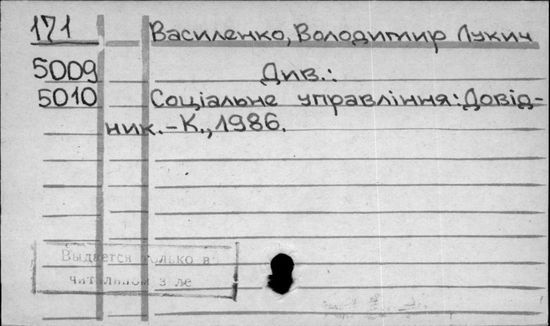 171 Василенко, Володимир Лукич
5009 Див.:
5010 Соціальне управління: Довід-
ник. – К., 1986.
Выдается только в
читальном зале